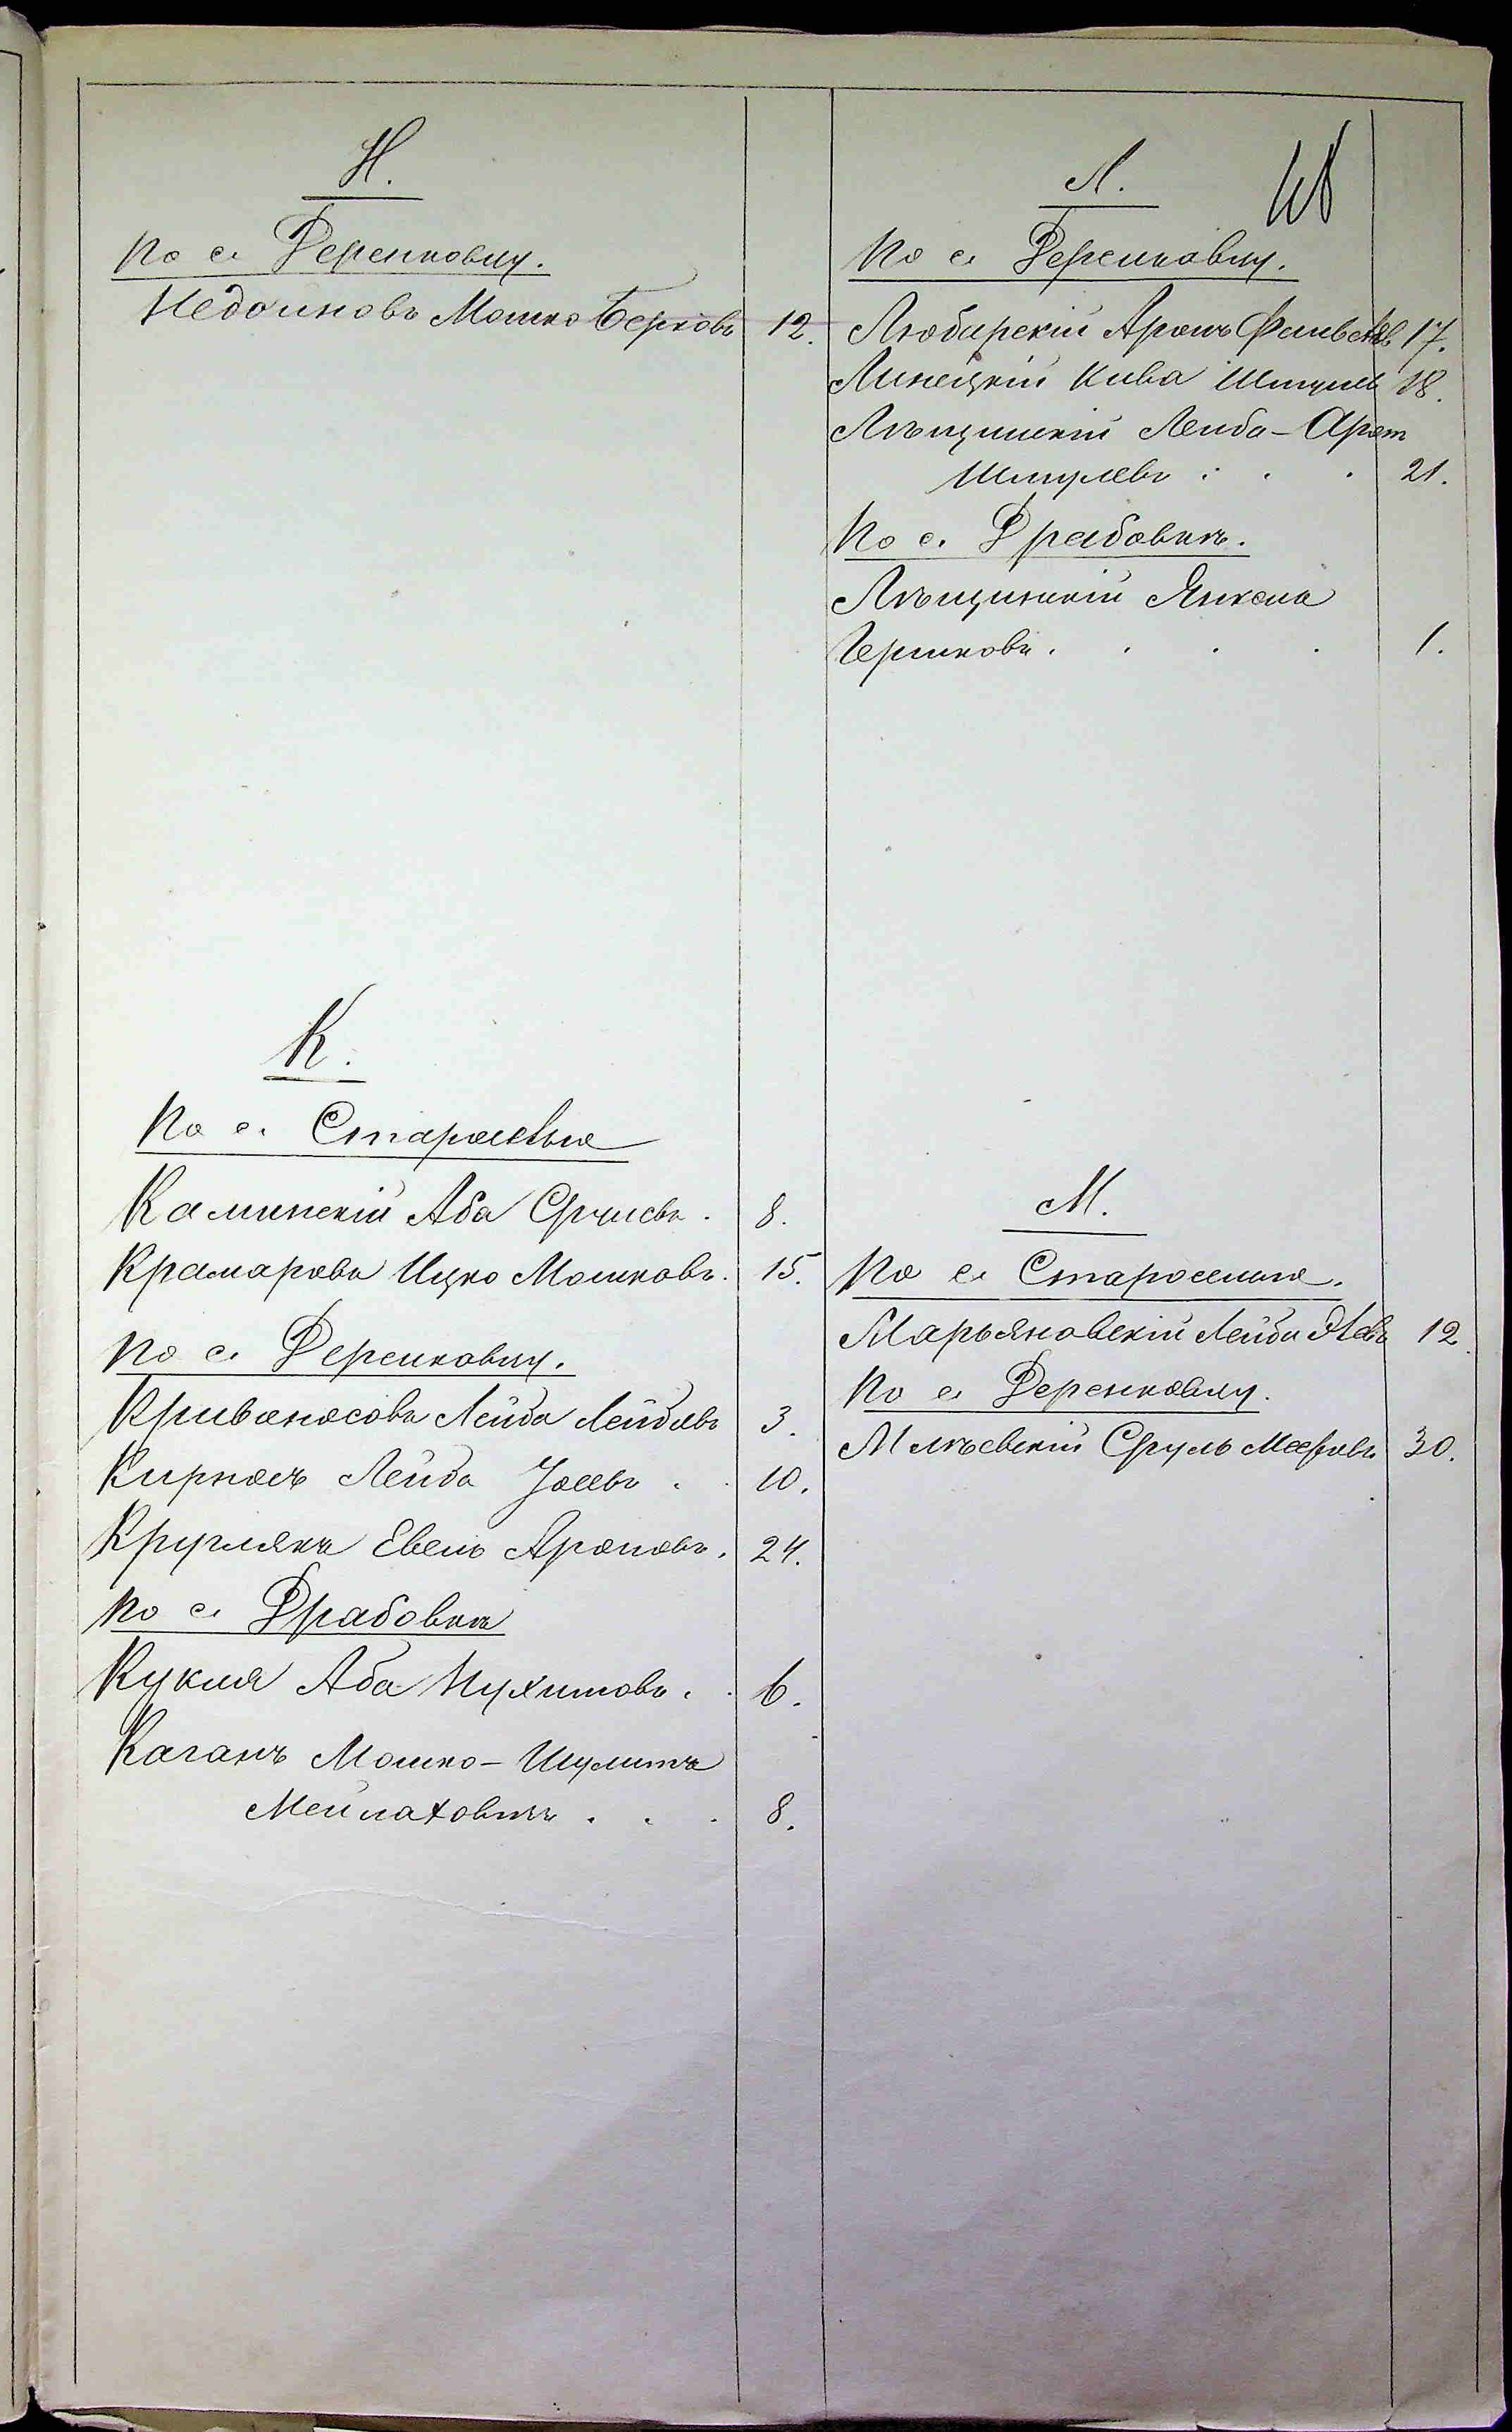 Н.
По с. Деренковцу.
Недоиновъ Мошко Берковъ 12.
К.
По с. Староселью
Каминскій Аба Срулевъ . 8.
Крамаровъ Ицко Мошковъ. 15.
По с. Деренковцу.
Кривоносовъ Лейба Лейбовъ 3.
Кирносъ Лейба Іосевъ . . 10.
Круглякъ Евель Ароновъ. 24.
По с. Драбовкѣ
Кукля Аба Нухимовъ . . 6.
Каганъ Мошко-Шулимъ
Мейлаховичъ . . . 8.
Л.
По с. Деренковцу.
Любарскій Аронъ 17.
Линецкій Кива Шмулев 18.
Лѣщинскій Лейба-Арон
Шмулевъ . . . 21.
По с. Драбовкѣ.
Лѣщинскій Янкель
Гершковъ . . . . 1.
М.
По с. Староселью.
Марьяновскій Лейба 12.
По с. Деренковцу.
Млѣевскій Сруль Мееровъ 30.